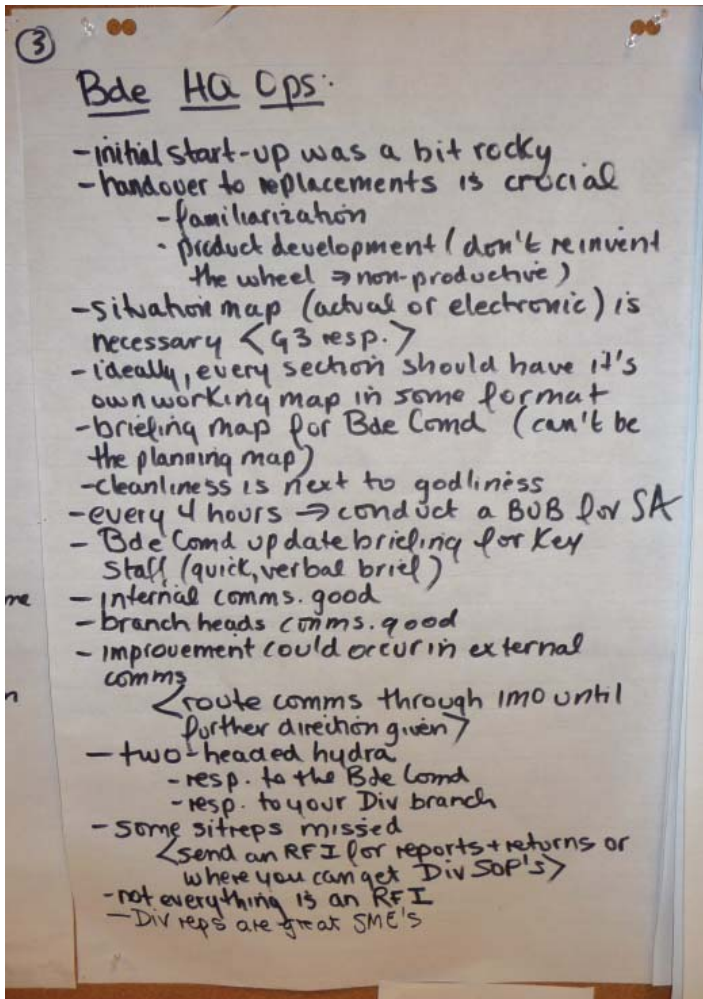 3
Bde HQ Ops:
- initial start-up was a bit rocky
- handover to replacements is crucial
- familiarization
- product development (don't reinvent
the wheel ⇒ non-productive)
- situation map (actual or electronic) is
necessary <G3 resp.>
- ideally, every section should have it's
own working map in some format
- briefing map for Bde Comd (can't be
the planning map)
- cleanliness is next to godliness
- every 4 hours → conduct a BUB for SA
- Bde Comd update briefing for Key
Staff (quick, verbal brief)
- internal comms. good
- branch heads comms. good
- improvement could occur in external
comms
<route comms through IMO until
further direction given>
- two-headed hydra
- resp. to the Bde Comd
- resp. to your Div branch
- some sitreps missed
<send an RFI for reports + returns or
where you can get Div SOP's>
- not everything is an RFI
- Div reps are great SME's